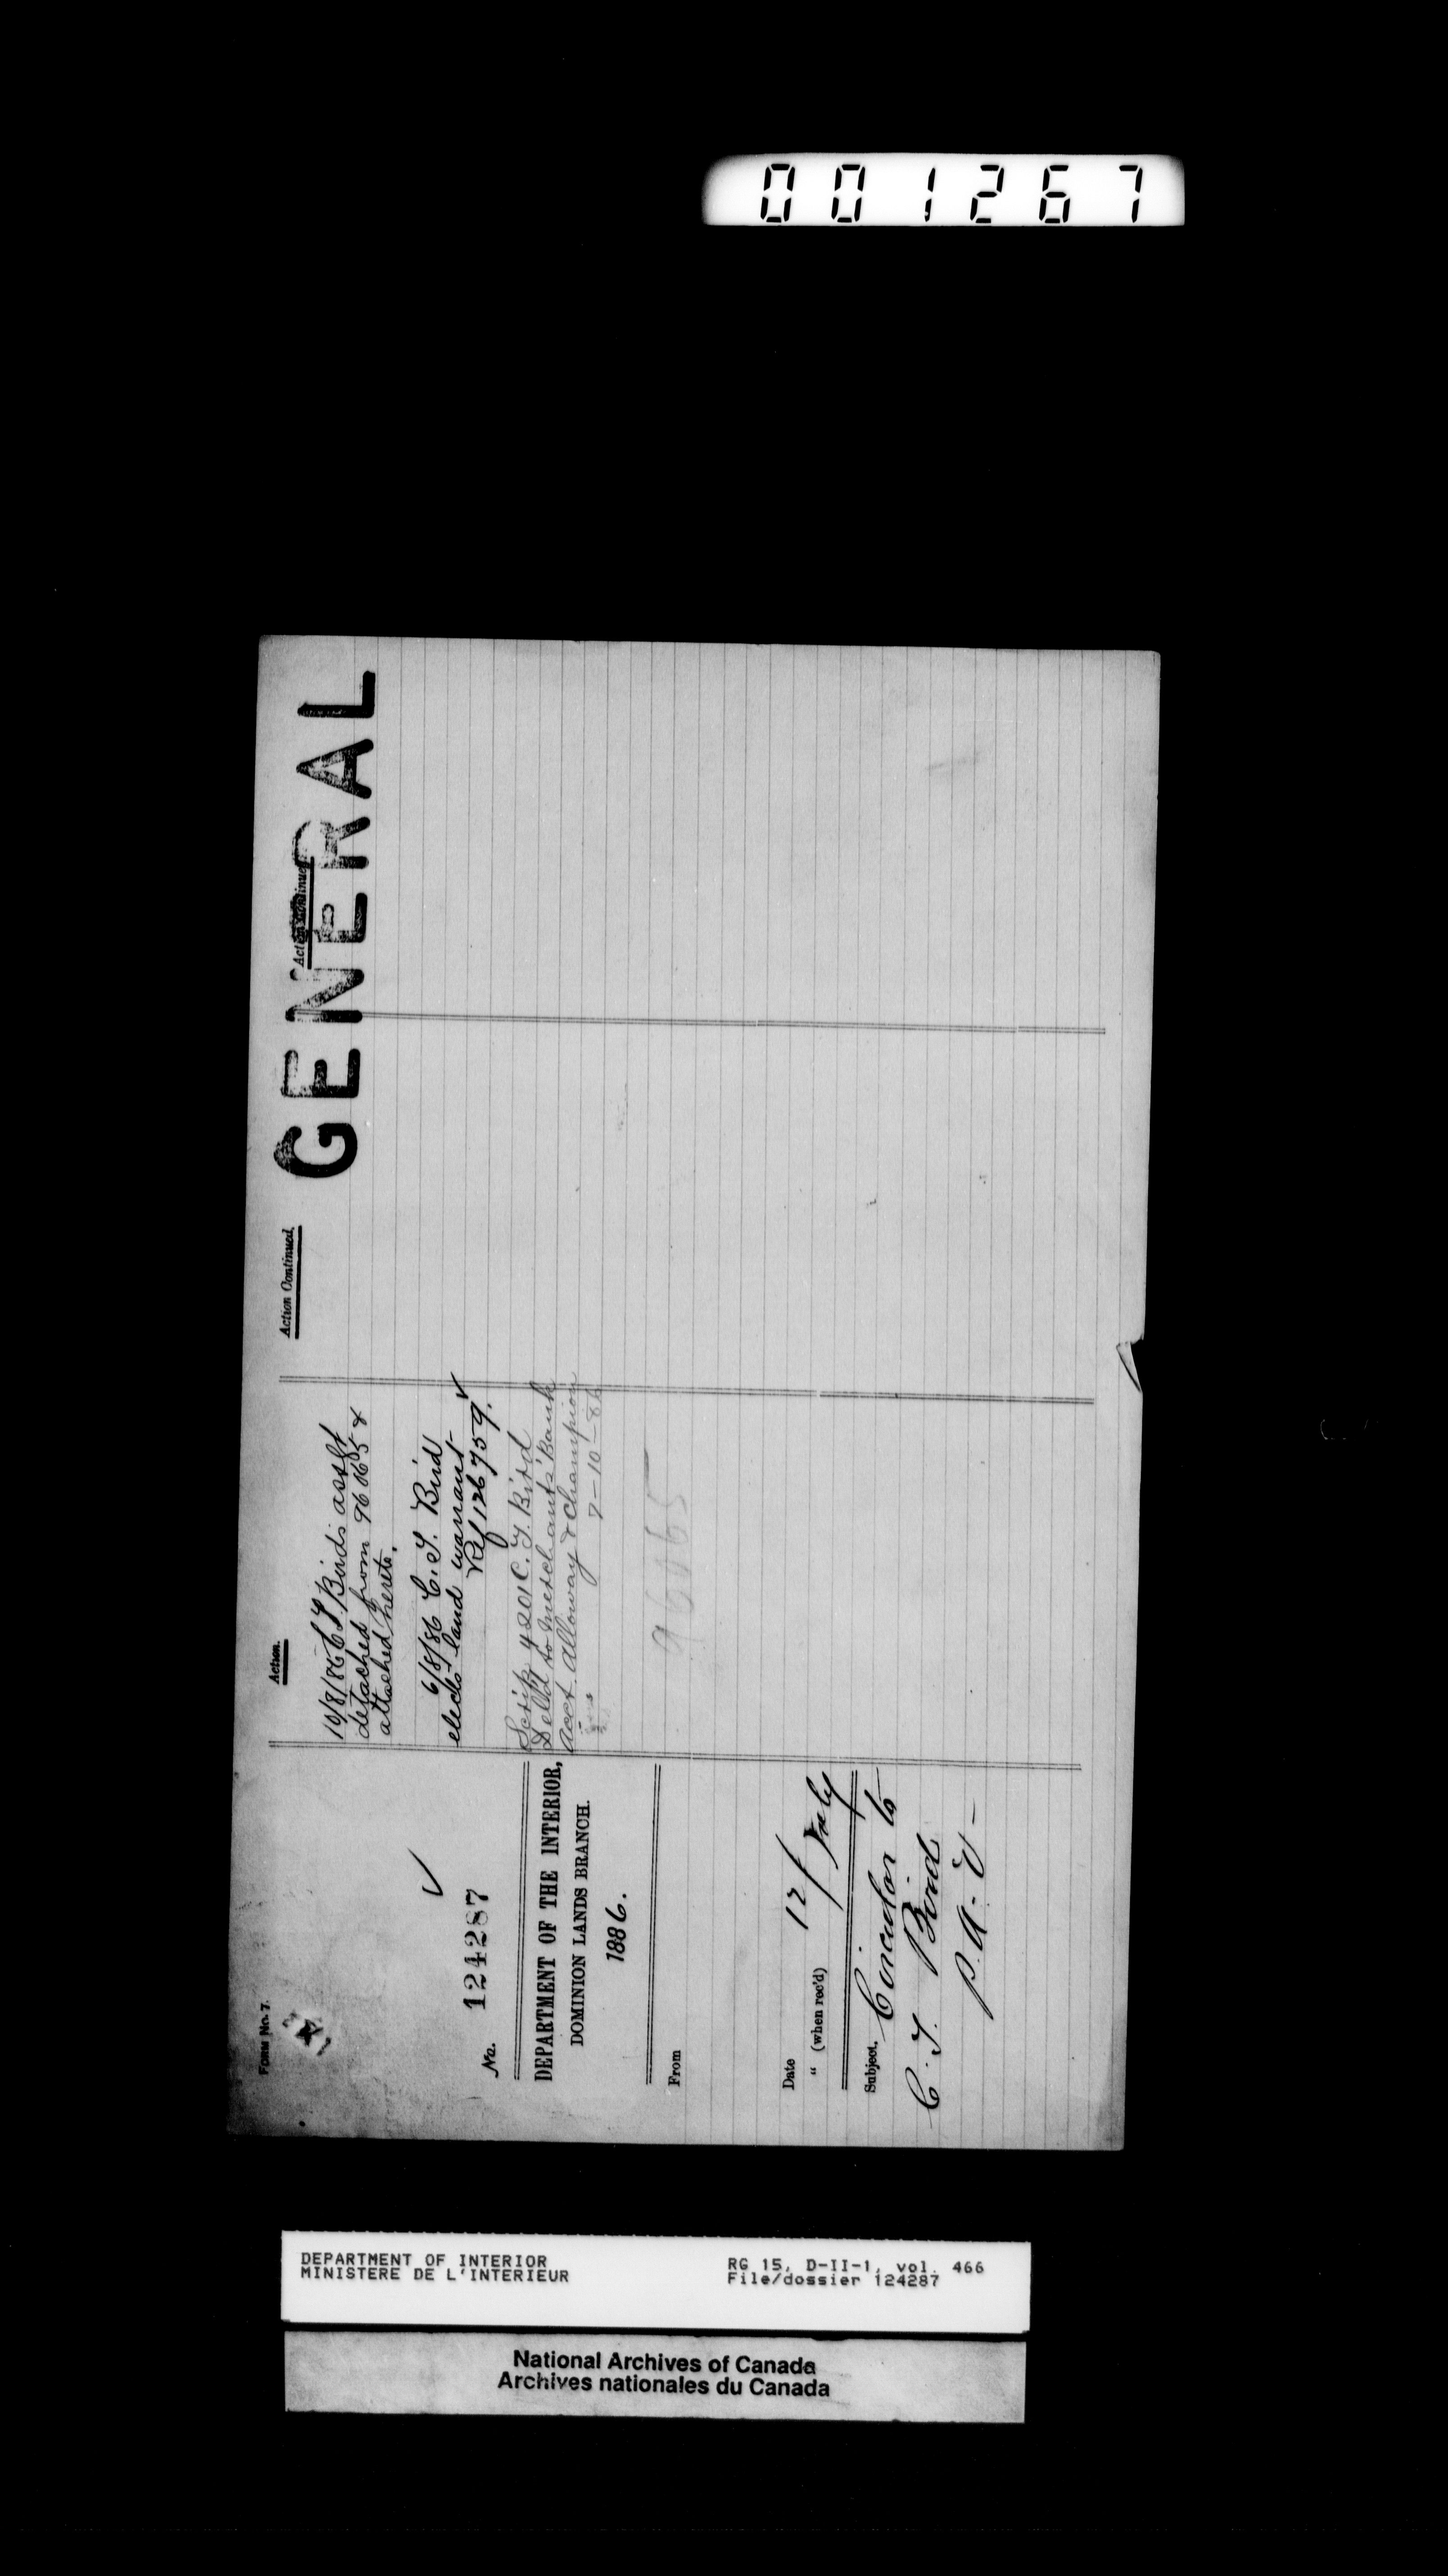 001267
FORM No. 7.
No. 124287
DEPARTMENT OF THE INTERIOR,
DOMINION LANDS BRANCH.
1886.
From
Date 12 July
" (when rec'd)
Subject.
Circular to
C. T. Bird
P. A. -
Action.
10/8/86 C T. Birds asst
detached from 96065 &
attached hereto.
6/8/86 C. T. Bird
elects land warrant
Ref 126759.
Scrip 4201 C. T. Bird
Delld to Merchants Bank
Acct. Alloway & Champion
7-10-86
96065
Action Continued.
Action Continued
GENERAL
DEPARTMENT OF INTERIOR
MINISTERE DE L'INTERIEUR
RG 15, D-II-1, vol. 466
File/dossier 124287
National Archives of Canada
Archives nationales du Canada